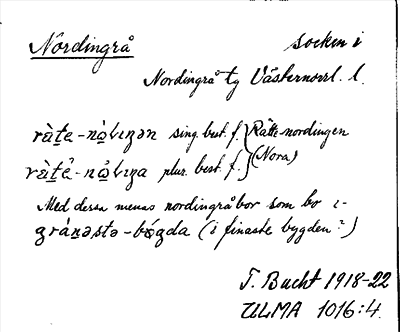 Nordingrå socken i
Nordingrå tg Västernorrl. l.
sing. best. f. Rätte-nordingen
plur. best. f. (Nora)
Med dessa menas nordingråbor som bo i
gránǝstǝ-bǿgda (i finaste bygden?)
T. Bucht 1918-22
ULMA 1016:4.